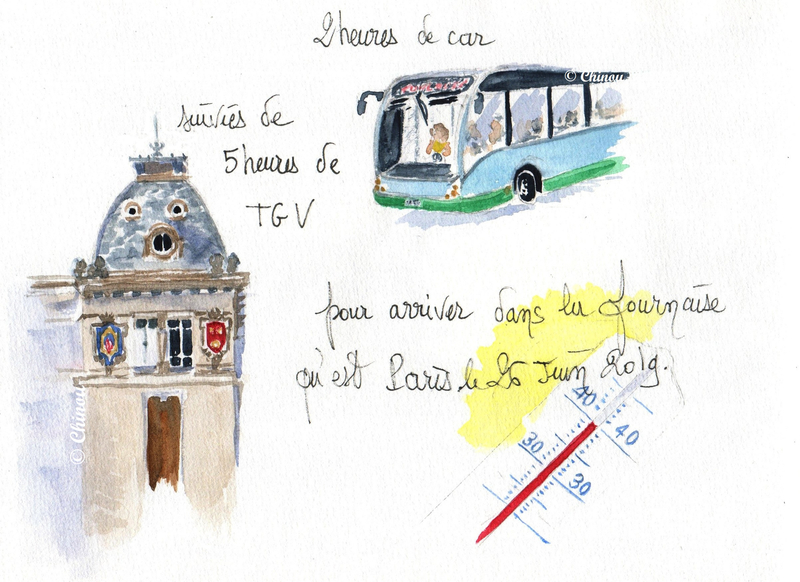 2 heures de car
© Chinou
suivies de
5 heures de
TGV
pour arriver dans la fournaise
qu'est Paris le 26 Juin 2019.
40
40
30
30
© Chinou